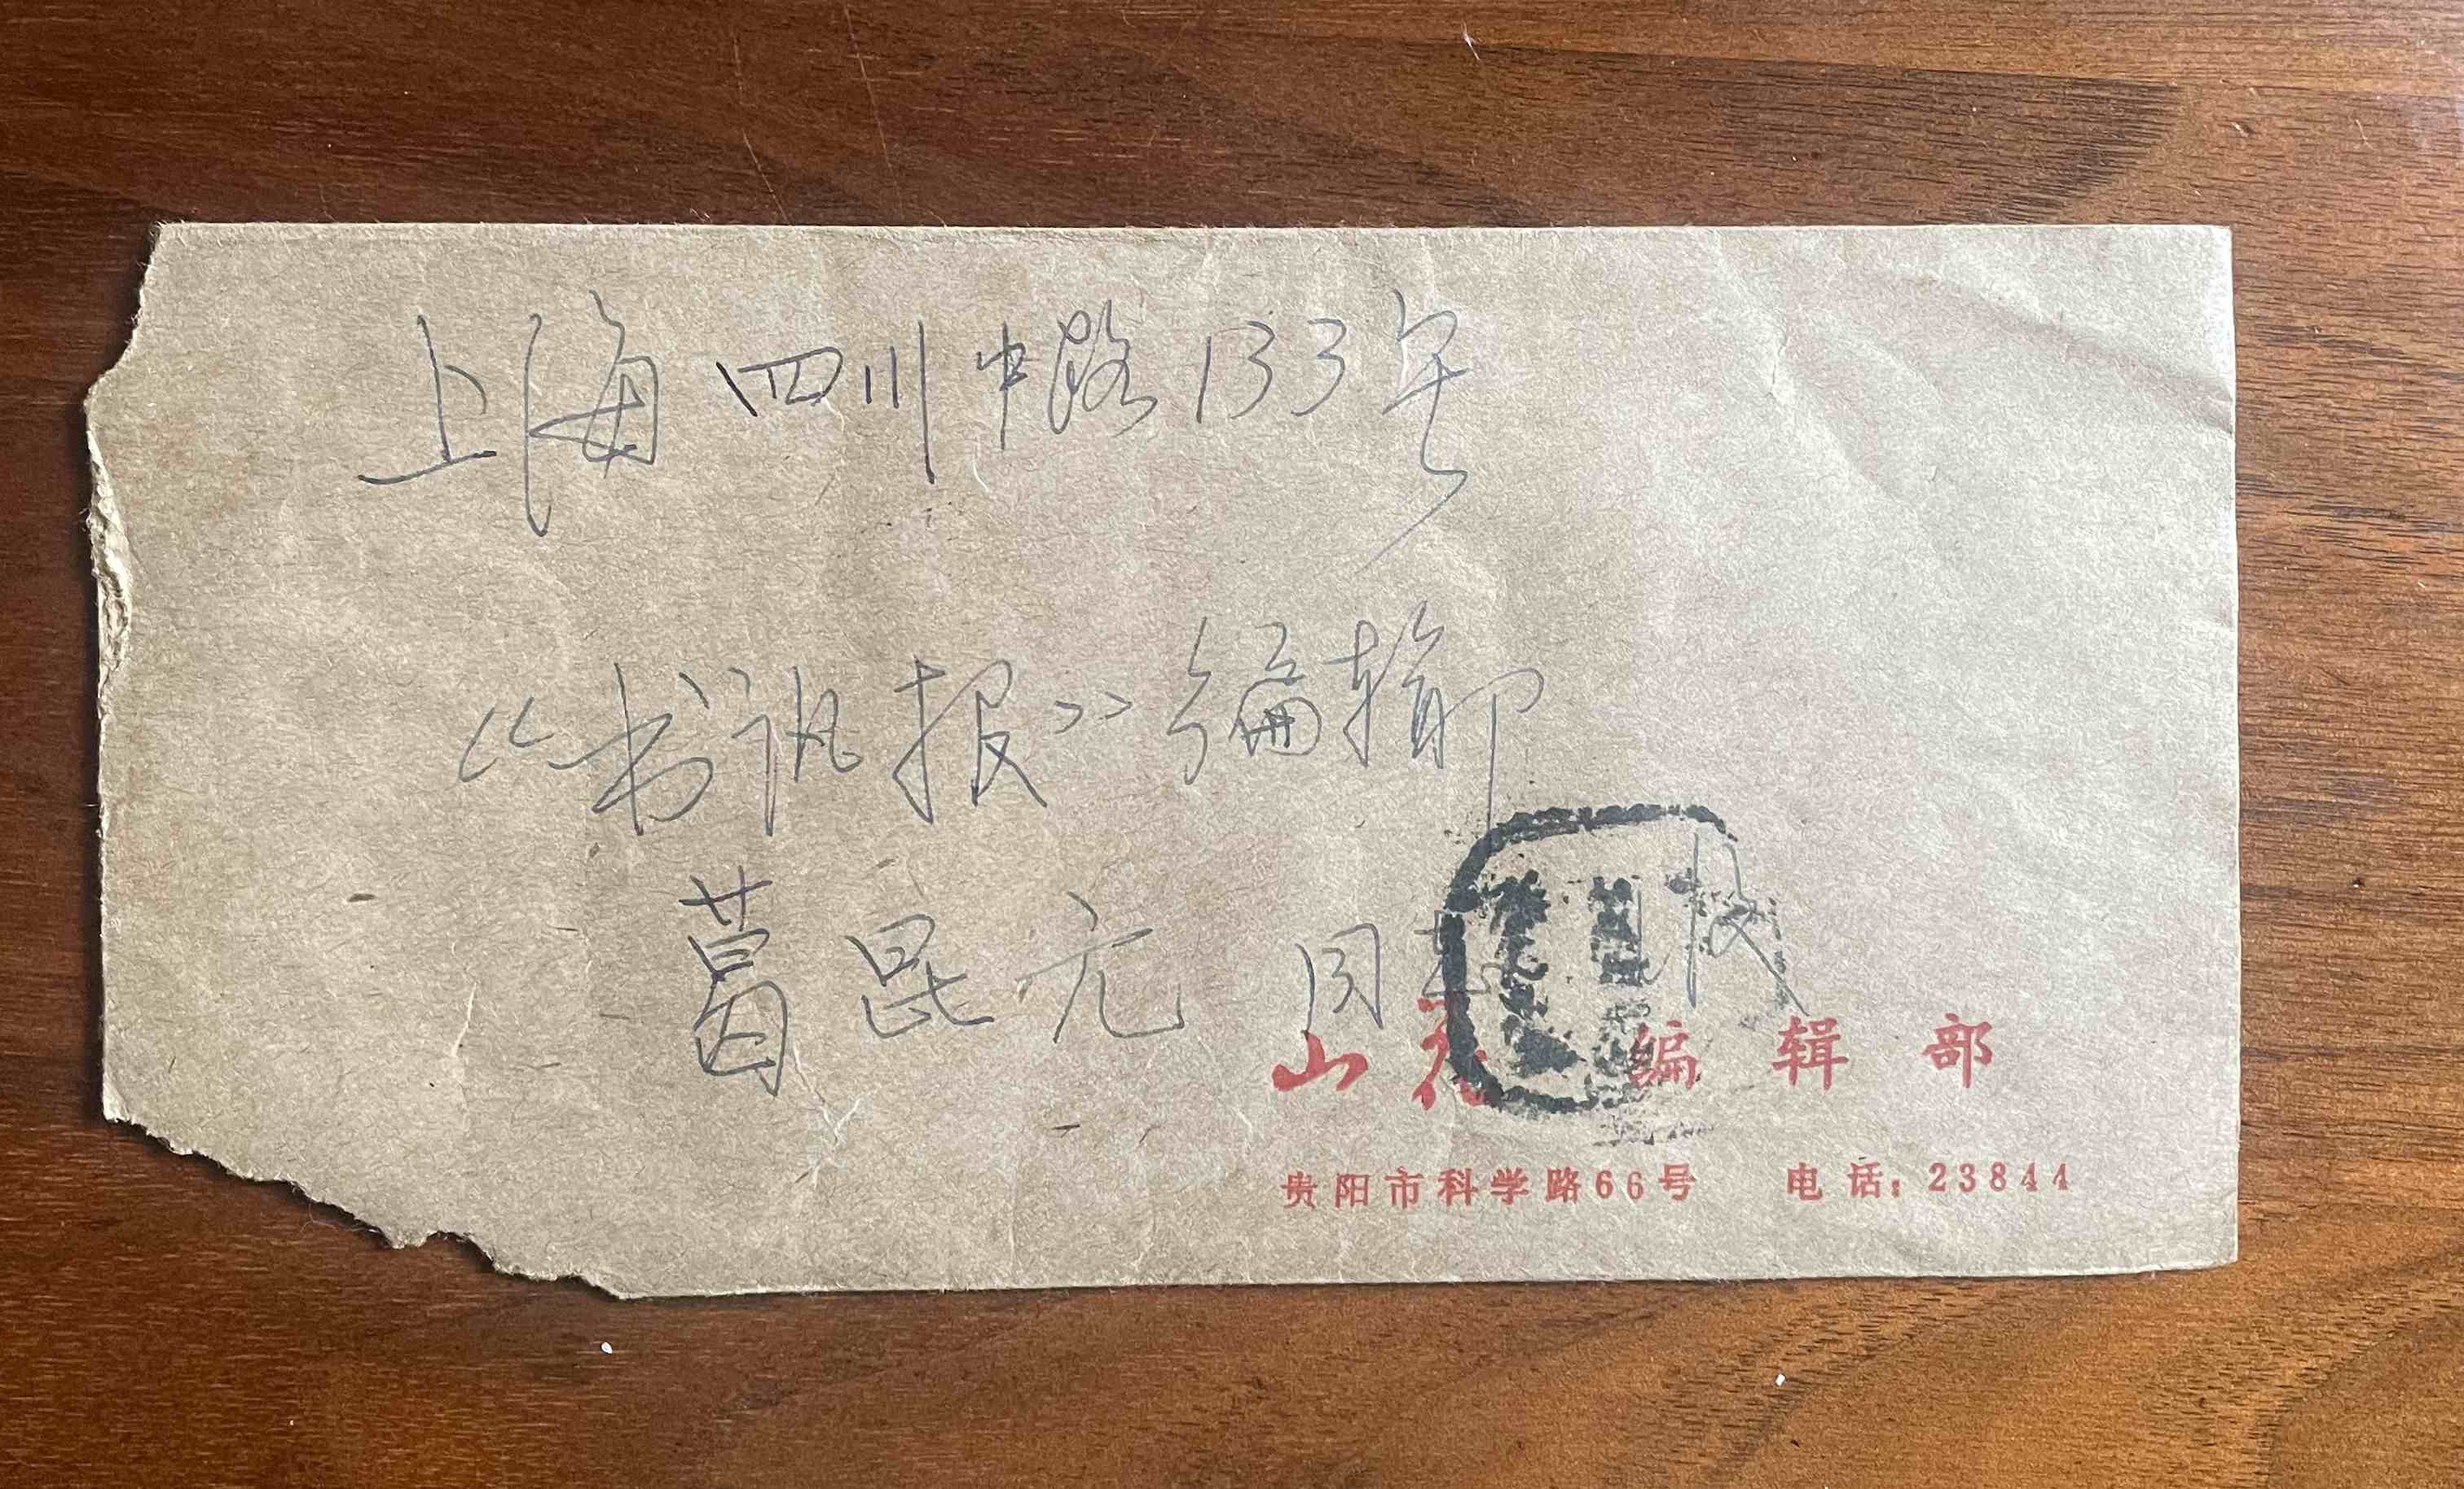 上海四川中路133号
《书讯报》编辑卩
葛昆元 同志 收
山花 编辑部
贵阳市科学路66号 电话:23844